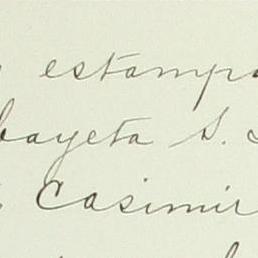 estampa
bayeta S.
Casimir